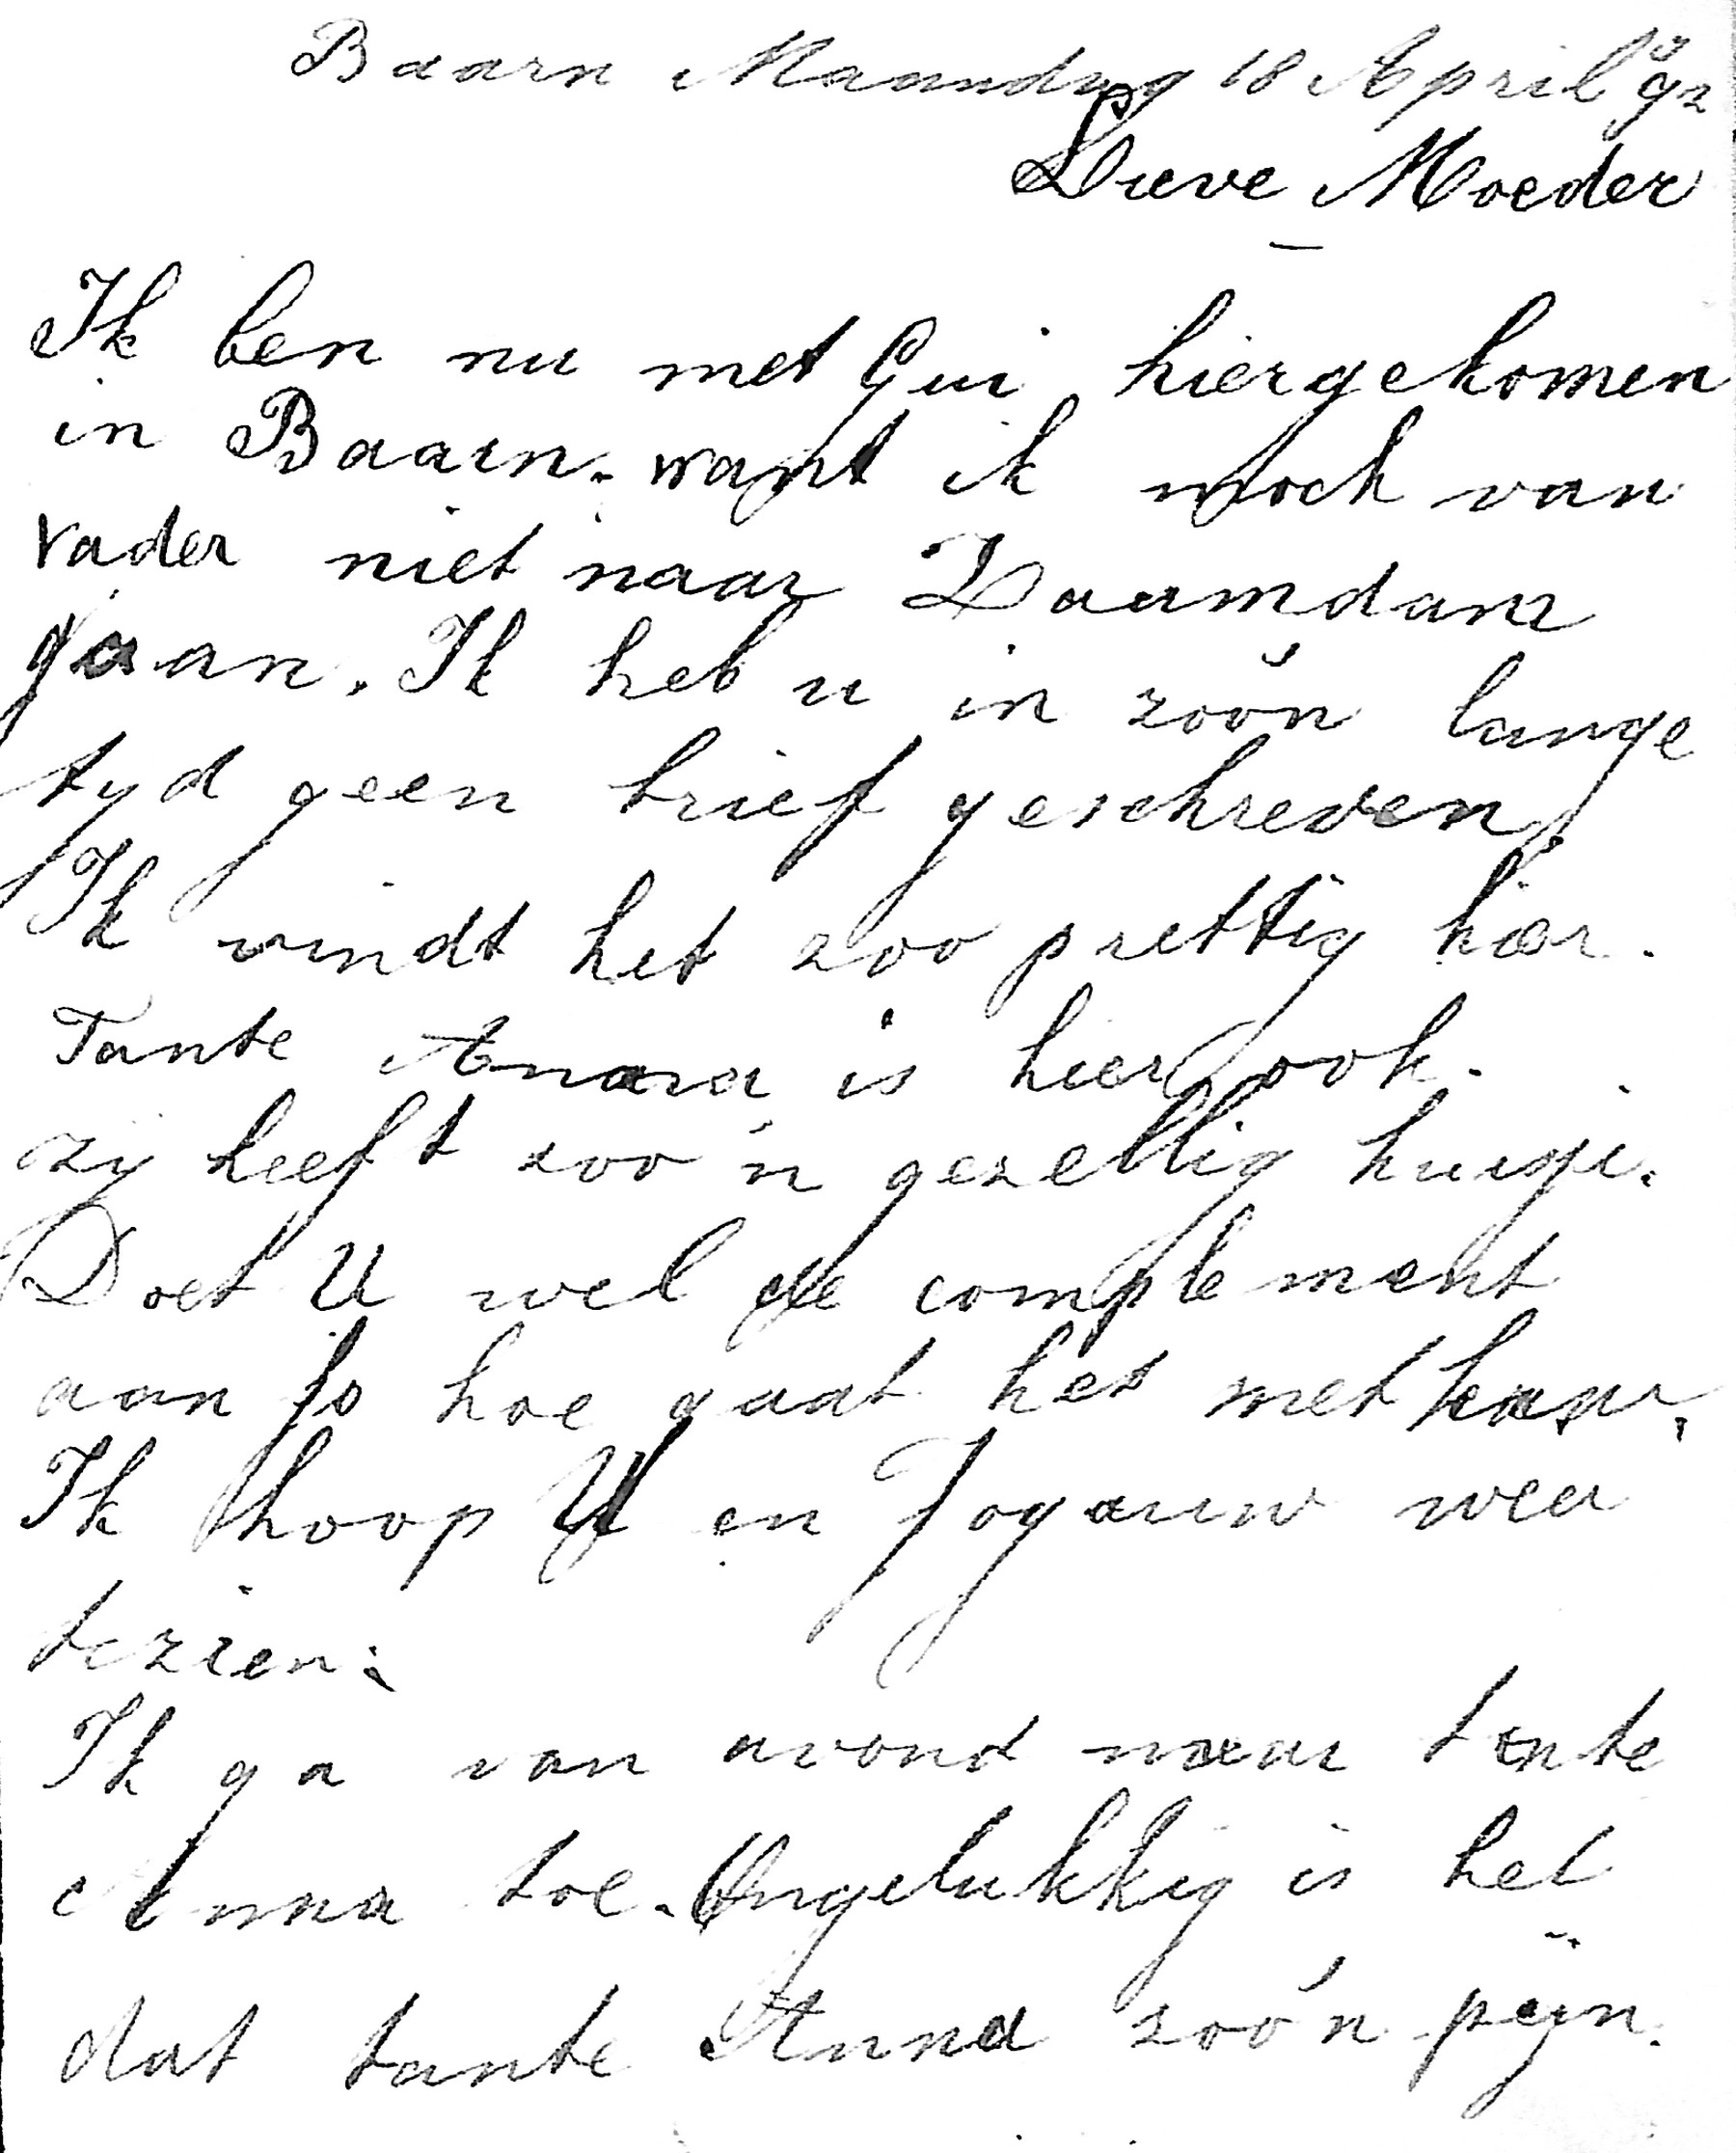 Baarn Maandag 18 April 92
Lieve Moeder
Ik ben nu met Gui hiergekomen
in Baarn. want ik moch van
vader niet naar Zaamdam
gaan. Ik heb u in zoó'n lange
tyd geen brief geschreven.
Ik vindt het zoo prettig hier.
Tante Anna is hier ook.
zij heeft zoo'n gezellig huisje.
Doet U wel de complement
aan Jo hoe gaat het met haar.
Ik hoop U en Jo gauw weer
te zien.
Ik ga van avond naar tante
Anna toe. Ongelukkig is het
dat tante Anna zoo'n pijn.